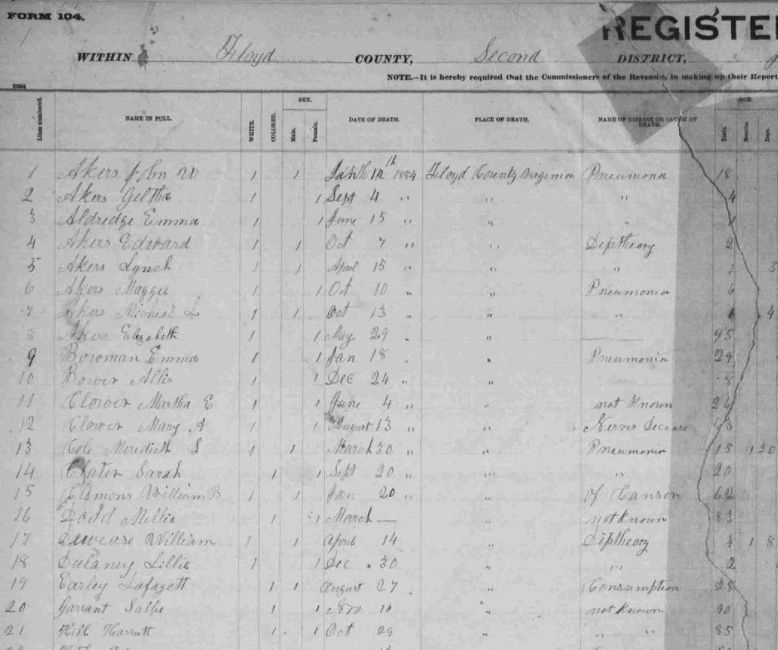 FORM 104.
REGISTE
WITHIN Floyd COUNTY, Second DISTRICT,
NOTE.—It is hereby required that the Commissioners of the Revenue, in making up their Report
Lines numbered. NAME IN FULL. WHITE. COLORED. SEX. Male. Female. DATE OF DEATH. PLACE OF DEATH. NAME OF DISEASE OR CAUSE OF DEATH. AGE. Years. Months. Days.
1 Akers John W 1 1 12th 1884 Floyd County Virginia Pneumona 18
2 Akers 1 1 Sept 4 " " " 4
3 Aldredge Emma 1 1 June 15 " " 1
4 Akers Edward 1 1 Oct 7 " " Diptheory 2
5 Akers Lynch 1 1 April 15 " " " 1 5
6 Akers Maggie 1 1 Oct 10 " " Pneumonia 6
7 Akers Micheal L 1 1 Oct 13 " " " 1 4
8 Akers Elizabeth 1 1 May 29 " " 95
9 Bowman Emma 1 1 Jan 18 " " Pneumonia 29
10 Bower Allis 1 1 Dec 24 " " 8
11 Clower Martha E 1 1 June 4 " " not Known
12 Clower Mary A 1 1 August 13 " " Nervis
13 Cole Meredieth S 1 1 March 30 " " Pneumonia 15 1 20
14 Sarah 1 1 Sept 20 " " " 20
15 Clemons William B 1 1 Jan 20 " " of Canser 62
16 Dodd Millie 1 1 March — " not Known 83
17 William 1 1 April 14 " Diptheory 4 1 8
18 Dulaney Lillie 1 1 Dec 30 " " 2
19 Earley Lafayett 1 1 August 27 " Consumption 28
20 Garrant Sallie 1 1 Nov " not Known 90
21 Hill Harrutt 1 1 Oct 29 " " " 85